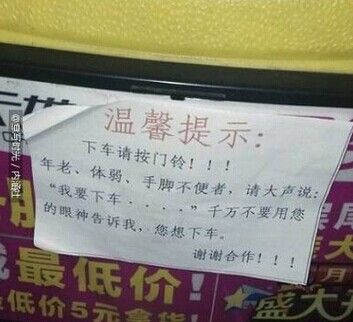 温馨提示:
下车请按门铃！！！
年老、体弱、手脚不便者，请大声说：
“我要下车．．．．”千万不要用您
的眼神告诉我，您想下车。
谢谢合作！！！
最低价!
低价5元拿货!
盛大